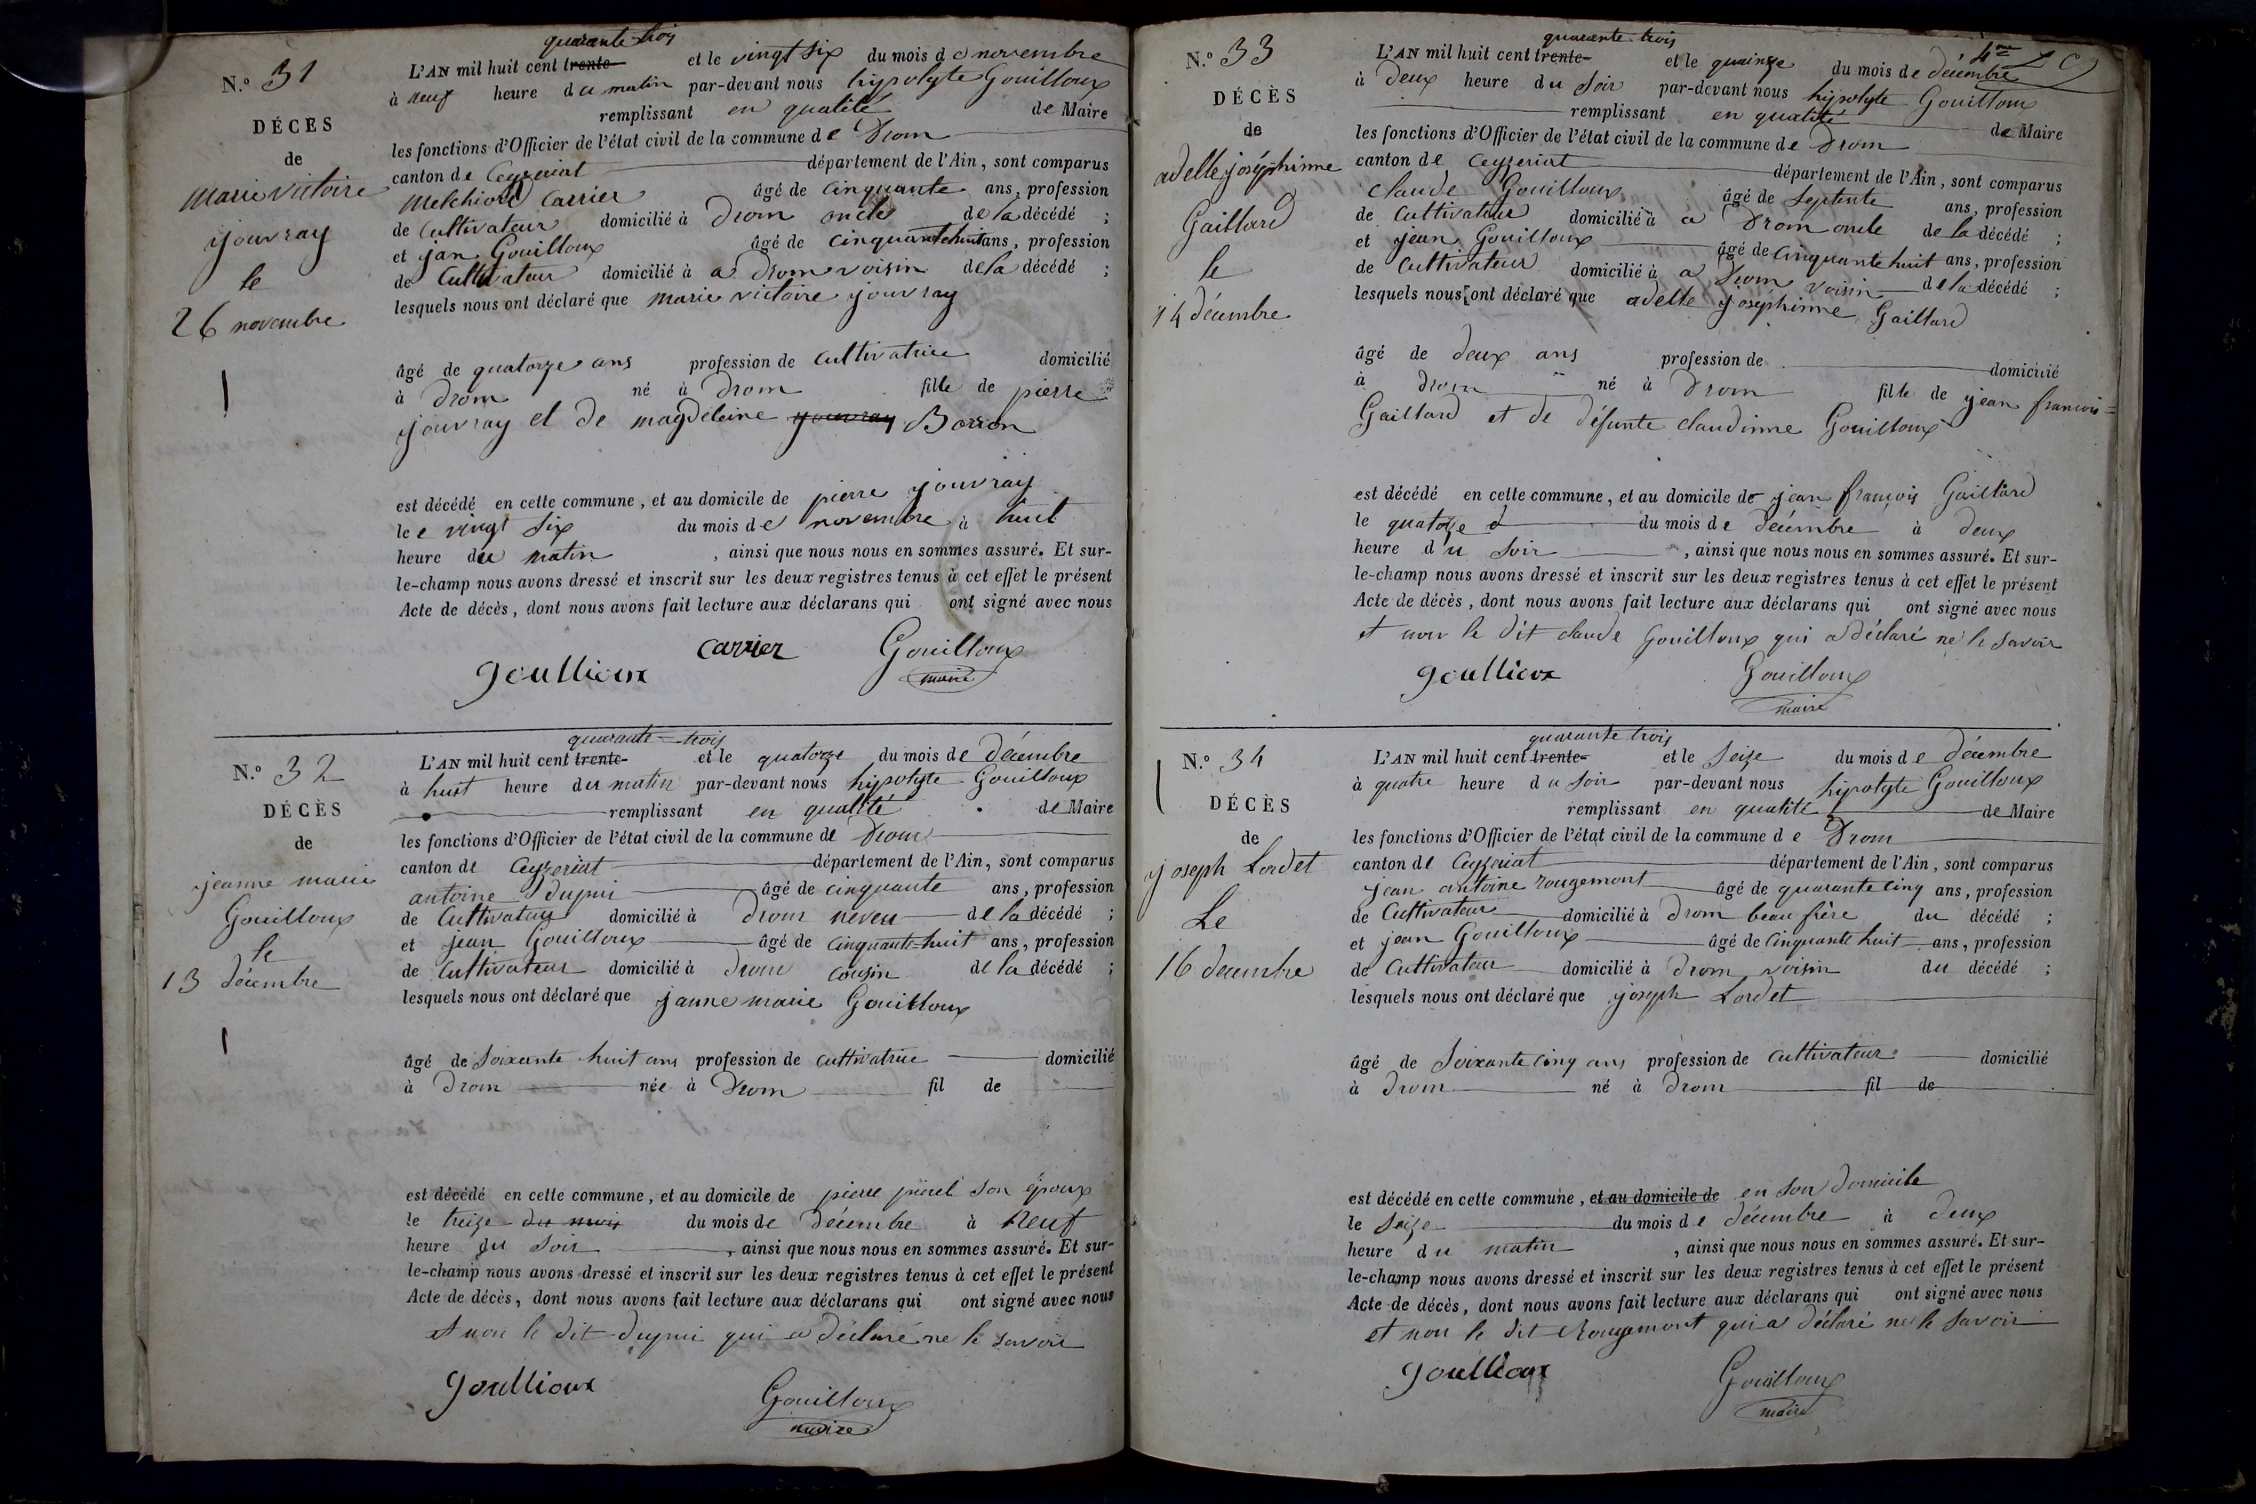 quarante trois
N.° 31
L'AN mil huit cent trente- et le vingt six du mois de novembre
à neuf heure du matin par-devant nous hypolyte Gouilloux
remplissant en qualité de Maire
DÉCÈS
les fonctions d'Officier de l'état civil de la commune de Drom
de
canton de Ceyzeriat département de l'Ain, sont comparus
marie victoire
melchiord Carrier âgé de cinquante ans, profession
de cultivateur domicilié à Drom oncle de la décédé ;
jouvray
et jan Gouilloux âgé de cinquante huit ans, profession
le
de Cultivateur domicilié à a Drom voisin de la décédé ;
26 novembre
lesquels nous ont déclaré que marie victoire jouvray
âgé de quatorze ans profession de cultivatrice domicilié
à Drom né à Drom fille de pierre
jouvray et de magdeleine jouvray Borron
est décédé en cette commune, et au domicile de pierre jouvray
le e vingt six du mois de novembre à huit
heure du matin , ainsi que nous nous en sommes assuré. Et sur-
le-champ nous avons dressé et inscrit sur les deux registres tenus à cet effet le présent
Acte de décès, dont nous avons fait lecture aux déclarans qui ont signé avec nous
goullioux carrier Gouilloux
maire
quarante-trois
N.° 32
L'AN mil huit cent trente- et le quatorze du mois de décembre
à huit heure du matin par-devant nous hypolyte Gouilloux
DÉCÈS
remplissant en qualité de Maire
de
les fonctions d'Officier de l'état civil de la commune de Drom
canton de Ceyzeriat département de l'Ain, sont comparus
jeanne marie
antoine Dupui âgé de cinquante ans, profession
Gouilloux
de Cultivateur domicilié à Drom neveu de la décédé ;
et jean Gouilloux âgé de cinquante-huit ans, profession
le
de Cultivateur domicilié à Drom cousin de la décédé ;
13 décembre
lesquels nous ont déclaré que janne marie Gouilloux
âgé de soixante huit ans profession de cultivatrice domicilié
à Drom née à Drom fil de
est décédé en cette commune, et au domicile de pierre son époux
le treize du mois du mois de décembre à neuf
heure du soir , ainsi que nous nous en sommes assuré. Et sur-
le-champ nous avons dressé et inscrit sur les deux registres tenus à cet effet le présent
Acte de décès, dont nous avons fait lecture aux déclarans qui ont signé avec nous
et non le dit dupui qui a déclaré ne le savoir
goullioux Gouilloux
maire
4me
quarante trois
N.° 33
L'AN mil huit cent trente- et le quinze du mois de décembre
à deux heure du soir par-devant nous hypolyte Gouilloux
DÉCÈS
remplissant en qualité de Maire
de
les fonctions d'Officier de l'état civil de la commune de Drom
adelle joséphinne
canton de Ceyzeriat département de l'Ain, sont comparus
claude Gouilloux âgé de septente ans, profession
Gaillard
de Cultivateur domicilié à a Drom oncle de la décédé ;
et jean Gouilloux âgé de cinquante huit ans, profession
le
de Cultivateur domicilié à a Drom voisin de la décédé ;
14 décembre
lesquels nous ont déclaré que adelle joséphinne Gaillard
âgé de deux ans profession de domicilié
à Drom né à Drom fille de jean francois
Gaillard et de défunte claudinne Gouilloux
est décédé en cette commune, et au domicile de jean françois Gaillard
le quatorze du mois de décembre à deux
heure du soir , ainsi que nous nous en sommes assuré. Et sur-
le-champ nous avons dressé et inscrit sur les deux registres tenus à cet effet le présent
Acte de décès, dont nous avons fait lecture aux déclarans qui ont signé avec nous
et non le dit claude Gouilloux qui a déclaré ne le savoir
goullioux Gouilloux
maire
quarante trois
N.° 34
L'AN mil huit cent trente- et le seize du mois de décembre
à quatre heure du soir par-devant nous hypolyte Gouilloux
DÉCÈS
remplissant en qualité de Maire
de
les fonctions d'Officier de l'état civil de la commune de Drom
joseph Lordet
canton de Ceyzeriat département de l'Ain, sont comparus
jean antoine rougemont âgé de quarante cinq ans, profession
Le
de Cultivateur domicilié à Drom beau frère du décédé ;
et jean Gouilloux âgé de cinquante huit ans, profession
16 decembre
de Cultivateur domicilié à Drom voisin du décédé ;
lesquels nous ont déclaré que joseph Lordet
âgé de soixante cinq ans profession de cultivateur domicilié
à Drom né à Drom fil de
est décédé en cette commune, et au domicile de en son domicile
le seize du mois de décembre à deux
heure du matin , ainsi que nous nous en sommes assuré. Et sur-
le-champ nous avons dressé et inscrit sur les deux registres tenus à cet effet le présent
Acte de décès, dont nous avons fait lecture aux déclarans qui ont signé avec nous
et non le dit Rougemont qui a déclaré ne le savoir
goullioux Gouilloux
maire